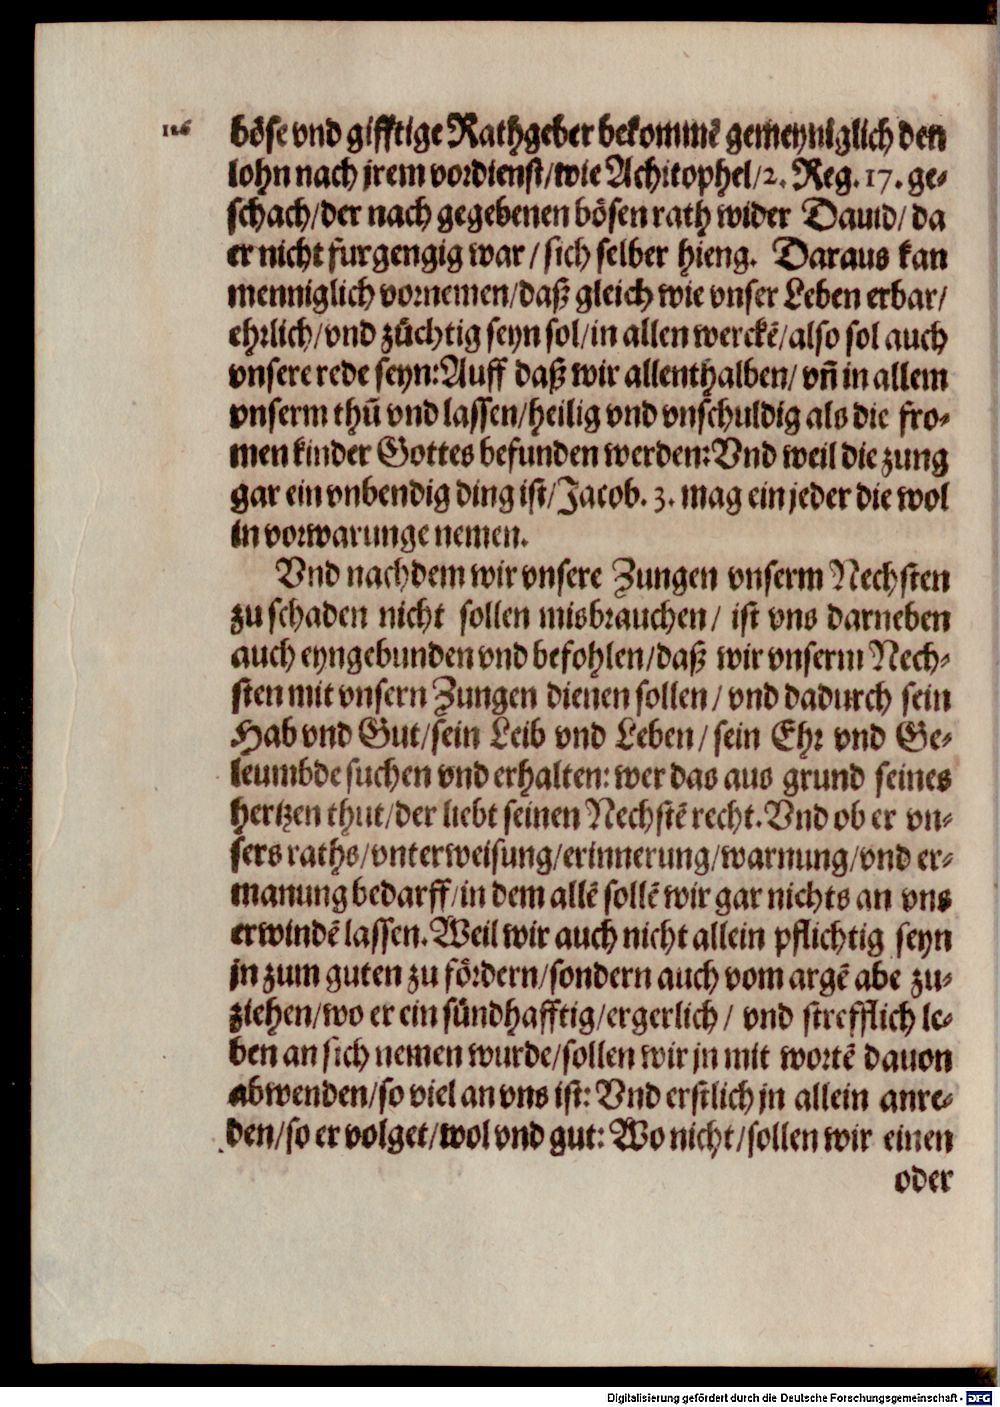 116
böse vnd gifftige Rathgeber bekommē gemeyniglich den
lohn nach jrem vordienst/wie Achitophel/2. Reg. 17. ge-
schach/der nach gegebenen bösen rath wider Dauid/ da
er nicht fürgengig war/ sich selber hieng. Daraus kan
menniglich vornemen/daß gleich wie vnser Leben erbar/
ehrlich/vnd züchtig seyn sol/in allen werckē/also sol auch
vnsere rede seyn: Auff daß wir allenthalben/ vn̄ in allem
vnserm thū vnd lassen/heilig vnd vnschuldig als die fro-
men kinder Gottes befunden werden: Vnd weil die zung
gar ein vnbendig ding ist/Jacob. 3. mag ein jeder die wol
in vorwarunge nemen.
Vnd nachdem wir vnsere Zungen vnserm Nechsten
zu schaden nicht sollen misbrauchen/ ist vns darneben
auch eyngebunden vnd befohlen/daß wir vnserm Nech-
sten mit vnsern Zungen dienen sollen/ vnd dadurch sein
Hab vnd Gut/sein Leib vnd Leben/ sein Ehr vnd Ge-
leumbde suchen vnd erhalten: wer das aus grund seines
hertzen thut/der liebt seinen Nechstē recht. Vnd ob er vn-
sers raths/vnterweisung/erinnerung/warnung/vnd er-
manung bedarff/in dem allē sollē wir gar nichts an vns
erwindē lassen. Weil wir auch nicht allein pflichtig seyn
jn zum guten zu fördern/sondern auch vom argē abe zu-
ziehen/wo er ein sündhafftig/ergerlich/ vnd strefflich le-
ben an sich nemen wurde/sollen wir jn mit wortē dauon
abwenden/so viel an vns ist: Vnd erstlich jn allein anre-
den/so er volget/wol vnd gut: Wo nicht/sollen wir einen
oder
Digitalisierung gefördert durch die Deutsche Forschungsgemeinschaft - DFG